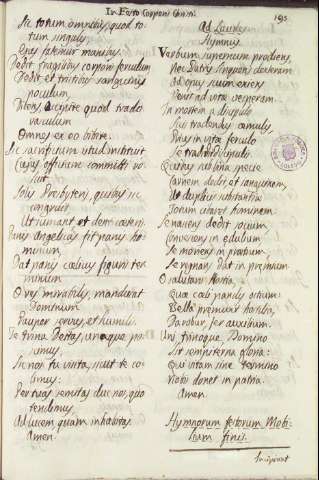 In Festo Corporis Christi
195
Sic totum omnibus, quod to-
tum singulis
Eius fatemur manibus.
Dedit fragilibus corporis ferculum
Dedit et tristibus sanguinis
poculum
Dicens, accipite quod trado
vasculum
Omnes ex eo bibite.
Sic sacrificium istud instituit
Cuius officium committi vo-
luit
Solis Presbyteris, quibus sic
congruit
Ut sumant et dent ceteris.
Panis Angelicus fit panis ho-
minum,
Dat panis cœlicus figuris ter-
minum
O res mirabilis, manducat
Dominum
Pauper servus, et humilis.
Te trina Deitas, unaque pos-
cimus,
Sic nos tu visita, sicut te co-
limus:
Per tuas semitas duc nos, quo
tendimus,
Ad lucem quam inhabitas
Amen.
Ad Laudes
Hymnus
Verbum supernum prodiens,
Nec Patris linquens dexteram
Ad opus suum exiens
Venit ad vitæ vesperam.
In mortem a discipulo
Suis tradendus æmulis,
Prius in vitæ ferculo
Se tradidit discipulis
Quibus sub bina specie
Carnem dedit, et sanguinem,
Ut duplicis substantiæ
Totum cibaret hominem.
Se nascens dedit socium
Convescens in edulium
Se moriens in pretium,
Se regnans dat in præmium
O salutaris Hostia,
Quæ cæli pandis ostium:
Bella premunt hostilia,
Da robur, fer auxilium.
Uni, trinoque, Domino
Sit sempiterna gloria:
Qui vitam sine termino
Nobis donet in patria.
Amen
Hymnorum festorum Mobi-
lium finis.